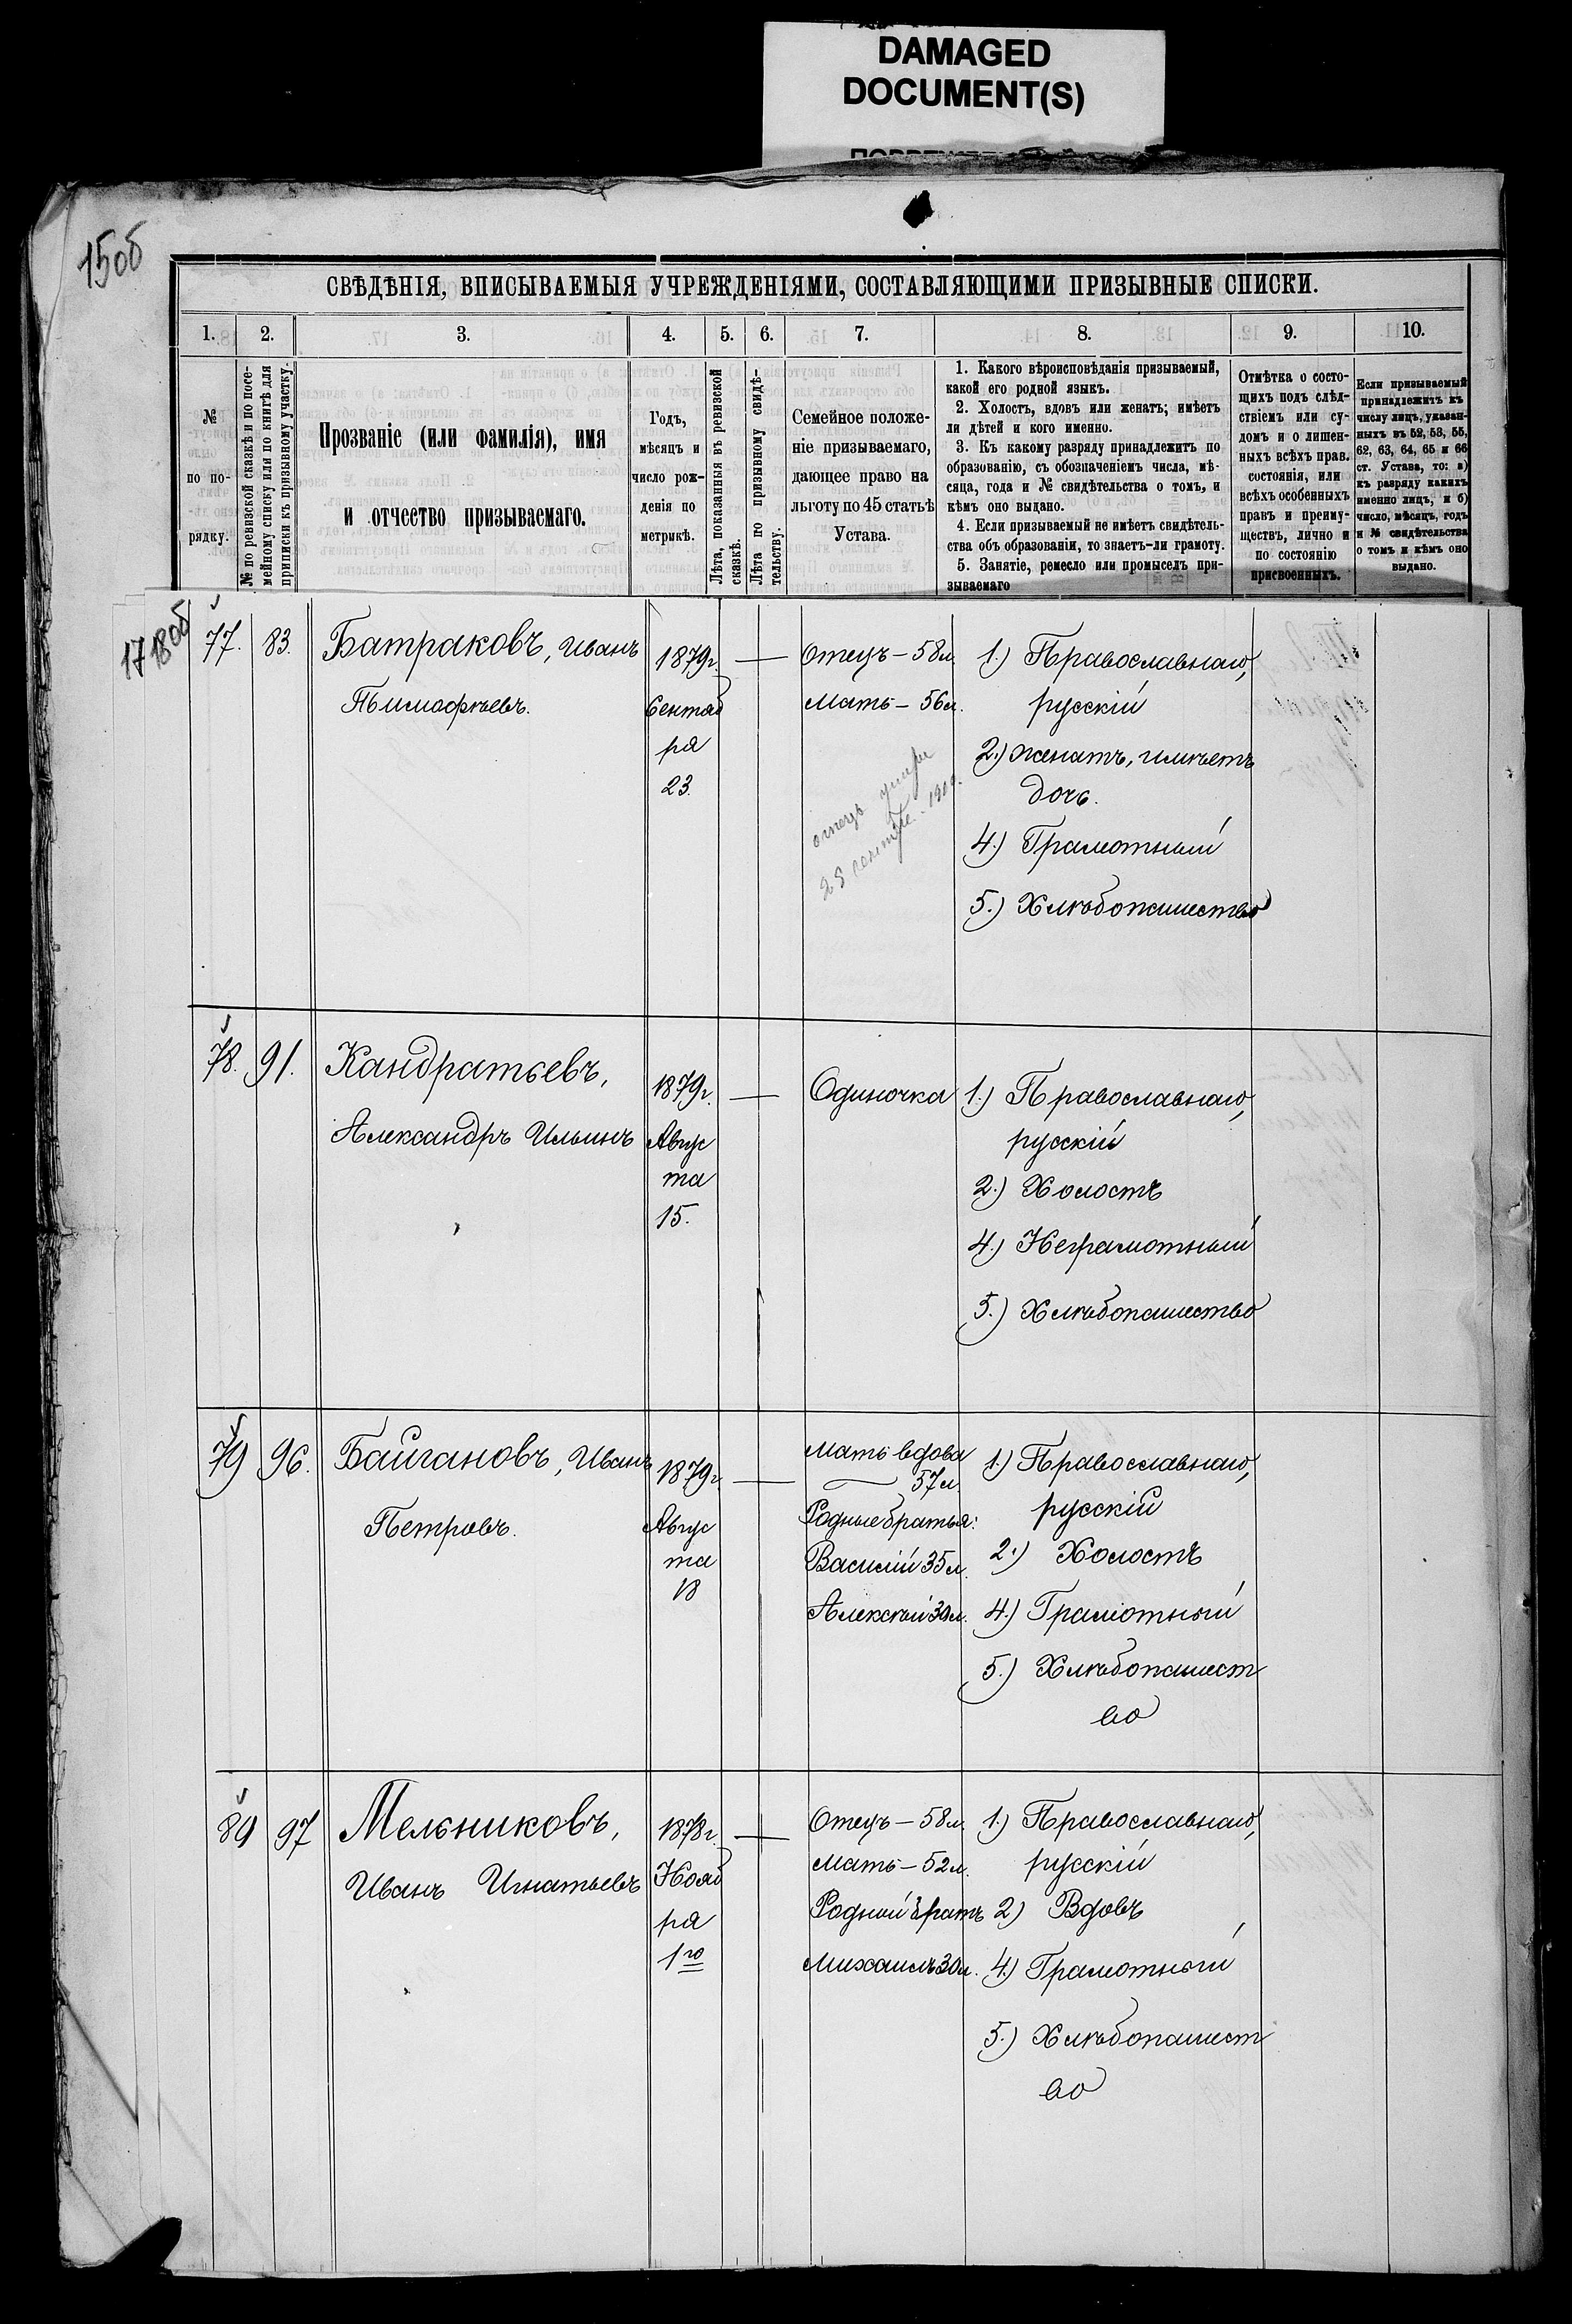 DAMAGED
DOCUMENT(S)
15об
СВѢДѢНІЯ, ВПИСЫВАЕМЫЯ УЧРЕЖДЕНІЯМИ, СОСТАВЛЯЮЩИМИ ПРИЗЫВНЫЕ СПИСКИ.
1. 2. 3. 4. 5. 6. 7. 8. 9. 10.
№
по по-
рядку.
№ по ревизской сказкѣ и по посе-
мейному списку или по книгѣ для
приписки къ призывному участку.
Прозваніе (или фамилія), имя
и отчество призываемаго.
Годъ,
мѣсяцъ и
число рож-
денія по
метрикѣ.
Лѣта, показанныя въ ревизской
сказкѣ.
Лѣта по призывному свидѣ-
тельству.
Семейное положе-
ніе призываемаго,
дающее право на
льготу по 45 статьѣ
Устава.
1. Какого вѣроисповѣданія призываемый,
какой его родной языкъ.
2. Холостъ, вдовъ или женатъ; имѣетъ
ли дѣтей и кого именно.
3. Къ какому разряду принадлежитъ по
образованію, съ обозначеніемъ числа, мѣ-
сяца, года и № свидѣтельства о томъ, и
кѣмъ оно выдано.
4. Если призываемый не имѣетъ свидѣтель-
ства объ образованіи, то знаетъ-ли грамоту.
5. Занятіе, ремесло или промыселъ при-
зываемаго
Отмѣтка о состо-
щихъ подъ слѣд-
ствіемъ или су-
домъ и о лишен-
ныхъ всѣхъ прав.
состоянія, или
всѣхъ особенныхъ
правъ и преиму-
ществъ, лично и
по состоянію
присвоенныхъ.
Если призываемый
принадлежитъ къ
числу лицъ, указан-
ныхъ въ 52, 53, 55,
62, 63, 64, 65 и 66
ст. Устава, то: а)
къ разряду какихъ
именно лицъ, и б)
число, мѣсяцъ, годъ
и № свидѣтельства
о томъ и кѣмъ оно
выдано.
17 18об
77. 83.
Батраковъ, Иванъ
Тимофѣевъ.
1879г.
Сентяб
ря
23.
Отецъ – 58л.
Мать – 56л.
отецъ умеръ
28 сентября 1900.
1.) Православнаго,
русскій
2.) женатъ, имѣетъ
дочь.
4.) Грамотный
5.) Хлѣбопашество
78. 91.
Кандратьевъ,
Александръ Ильинъ
1879г.
Авгус
та
15.
Одиночка
1.) Православнаго,
русскій
2.) Холостъ
4.) Неграмотный
5.) Хлѣбопашество
79 96.
Байгановъ, Иванъ
Петровъ.
1879г.
Авгус
та
18
Мать вдова
57л.
Родные братья:
Василій 35л.
Алексѣй 30л.
1.) Православнаго,
русскій
2.) Холостъ
4.) Грамотный
5.) Хлѣбопашест
во
89 97
Мельниковъ,
Иванъ Игнатьевъ
1878г.
Нояб
ря
1го
Отецъ – 58л.
Мать – 52л.
Родной братъ
Михаилъ 30л.
1.) Православнаго,
русскій
2) Вдовъ
4.) Грамотный
5.) Хлѣбопашест
во